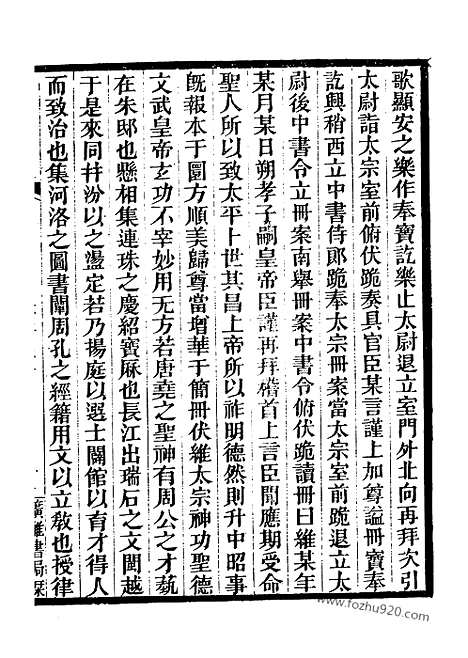 歌顯安之樂作奉寶訖樂止太尉退立室門外北向再拜次引
太尉詣太宗室前俯伏跪奏具官臣某言謹上加尊謚冊寶奉
訖興稍西立中書侍郎跪奉太宗冊案當太宗室前跪退立太
尉後中書令立冊案南舉冊案中書令俯伏跪讀冊曰維某年
某月某日朔孝子嗣皇帝臣謹再拜稽首上言臣聞應期受命
聖人所以致太平卜世其昌上帝所以祚明德然則升中昭事
旣報本于圜方順美歸尊當增華于簡冊伏維太宗神功聖德
文武皇帝玄功不宰妙用无方若唐堯之聖神有周公之才藝
在朱邸也懸相集連珠之慶紹寶厤也長江出瑞石之文閩越
于是來同幷汾以之盪定若乃揚庭以選士闢館以育才得人
而致治也集河洛之圖書闡周孔之經籍用文以立敎也授律
廣雅書局栞
www.fozhu920.com